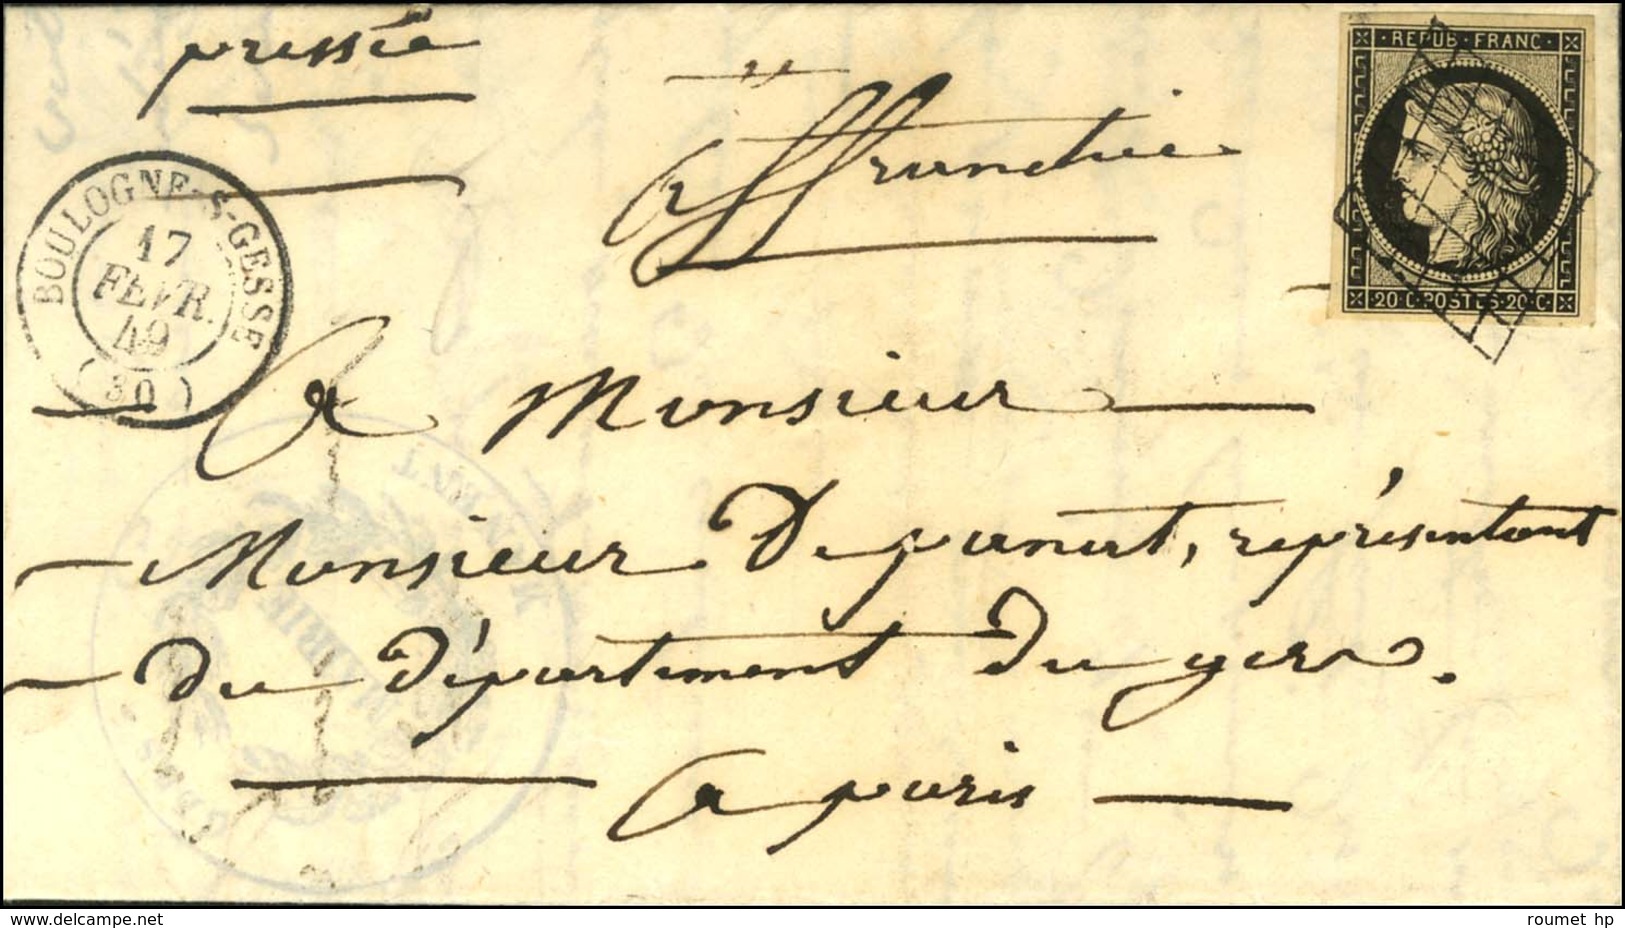 pressée
affranchie
REPUB·FRANC·
20·C·POSTES·20·C·
BOULOGNE-S-GESSE
17
FÉVR.
49
(30)
A Monsieur
Monsieur Depanart, représentant
du département du gers.
a paris
MAIRIE
delcampe.net
roumet hp